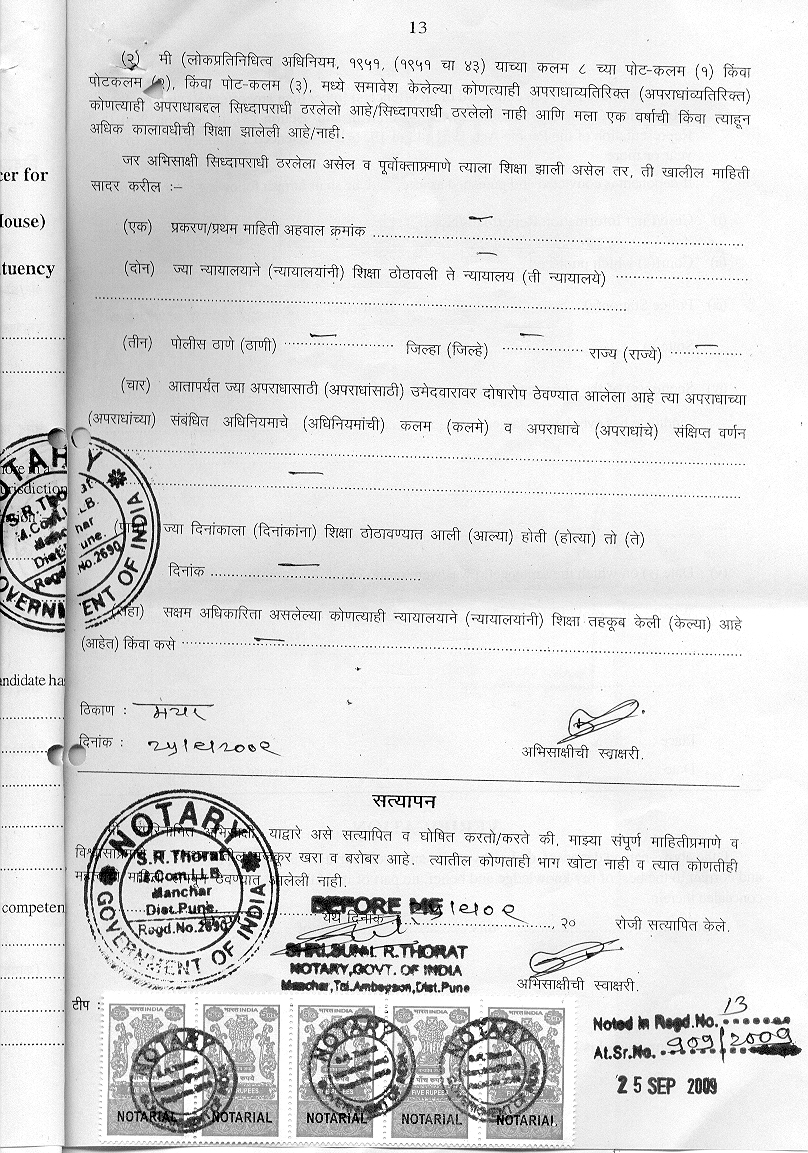 13
(२) मी (लोकप्रतिनिधित्व अधिनियम, १९५१, (१९५१ चा ४३) याच्या कलम ८ च्या पोट-कलम (१) किंवा
पोटकलम (२), किंवा पोट-कलम (३), मध्ये समावेश केलेल्या कोणत्याही अपराधाव्यतिरिक्त (अपराधांव्यतिरिक्त)
कोणत्याही अपराधाबद्दल सिध्दापराधी ठरलेलो आहे/सिध्दापराधी ठरलेलो नाही आणि मला एक वर्षाची किंवा त्याहून
अधिक कालावधीची शिक्षा झालेली आहे/नाही.
cer for
जर अभिसाक्षी सिध्दापराधी ठरलेला असेल व पूर्वोक्ताप्रमाणे त्याला शिक्षा झाली असेल तर, ती खालील माहिती
सादर करील :–
House)
(एक) प्रकरण/प्रथम माहिती अहवाल क्रमांक
tuency
(दोन) ज्या न्यायालयाने (न्यायालयांनी) शिक्षा ठोठावली ते न्यायालय (ती न्यायालये)
(तीन) पोलीस ठाणे (ठाणी) जिल्हा (जिल्हे) राज्य (राज्ये)
(चार) आतापर्यंत ज्या अपराधासाठी (अपराधांसाठी) उमेदवारावर दोषारोप ठेवण्यात आलेला आहे त्या अपराधाच्या
(अपराधांच्या) संबंधित अधिनियमाचे (अधिनियमांची) कलम (कलमे) व अपराधाचे (अपराधांचे) संक्षिप्त वर्णन
NOTARY
S.R.Thorat
M.Com.LL.B.
Manchar
Dist.Pune.
Regd.No.2690
GOVERNMENT OF INDIA
urisdiction
ज्या दिनांकाला (दिनांकांना) शिक्षा ठोठावण्यात आली (आल्या) होती (होत्या) तो (ते)
दिनांक
(सहा) सक्षम अधिकारिता असलेल्या कोणत्याही न्यायालयाने (न्यायालयांनी) शिक्षा तहकूब केली (केल्या) आहे
(आहेत) किंवा कसे
andidate ha
ठिकाण : मंचर
दिनांक : २५/९/२००९
अभिसाक्षीची स्वाक्षरी.
सत्यापन
मी, उपरिनामित अभिसाक्षी, याद्वारे असे सत्यापित व घोषित करतो/करते की, माझ्या संपूर्ण माहितीप्रमाणे व
खरा व बरोबर आहे. त्यातील कोणताही भाग खोटा नाही व त्यात कोणतीही
ठेवण्यात आलेली नाही.
competen
NOTARY
S.R.Thorat
M.Com.LL.B
Manchar
Dist.Pune
Regd.No.2690
GOVERNMENT OF INDIA
BEFORE ME
येथे दिनांक , २० रोजी सत्यापित केले.
SHRI.SUNIL R.THORAT
NOTARY,GOVT. OF INDIA
Manchar,Tal.Ambegaon,Dist.Pune
अभिसाक्षीची स्वाक्षरी.
टीप :
भारत INDIA
NOTARY
NOTARIAL NOTARIAL NOTARIAL NOTARIAL NOTARIAL
Noted in Regd.No. 13
At.Sr.No. 909/2009
25 SEP 2009